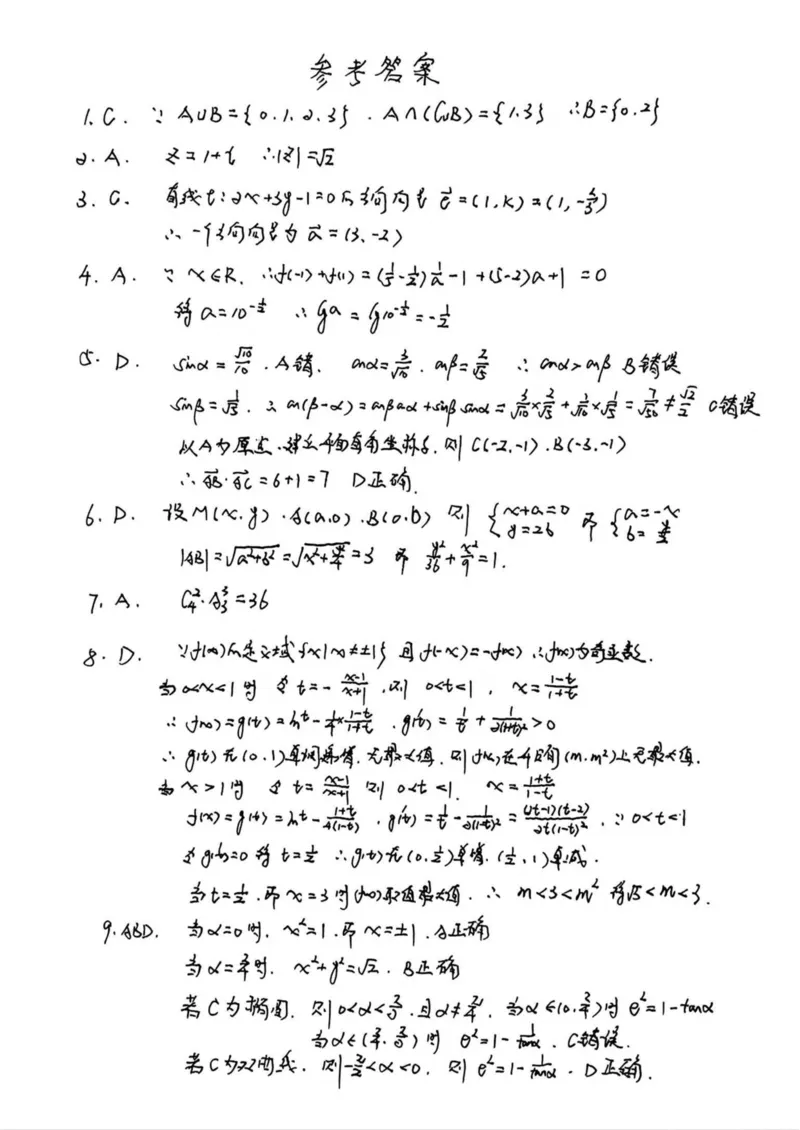 参考答案
1. C. ∵ A∪B={0.1.2.3}. A∩(∁uB)={1.3} ∴B={0.2}
2. A. z=1+i ∴|z|=√2
3. C. 直线l:2x+3y-1=0的方向向量 e⃗=(1,k)=(1,-2/3)
∴一个方向向量为 a⃗=(3,-2)
4. A. ∵ x∈R. ∴f(-1)+f(1)=(1/5-1/2)1/a-1+(5-2)a+1=0
得 a=10^(-1/2) ∴lga=lg10^(-1/2)=-1/2
5. D. sinα=√10/10. A错. cosα=3/√10. cosβ=2/√5 ∴cosα>cosβ B错误
sinβ=1/√5. ∴cos(β-α)=cosβcosα+sinβsinα=3/√10×2/√5+1/√10×1/√5=7/√50≠√2/2 C错误
以A为原点.建立平面直角坐标系.则 C(-2,-1).B(-3,-1)
∴AB⃗·AC⃗=6+1=7 D正确.
6. D. 设M(x.y).A(a.0).B(0.b) 则 {x+a=0 y=2b 即 {a=-x b=y/2
|AB|=√(a²+b²)=√(x²+y²/4)=3 即 y²/36+x²/9=1.
7. A. C₄²·A₃³=36
8. D. ∵f(x)的定义域{x|x≠±1} 且f(-x)=-f(x) ∴f(x)为奇函数.
当0<x<1时 令t=-(x-1)/(x+1),则 0<t<1, x=(1-t)/(1+t)
∴f(x)=g(t)=lnt-1/4×(1-t)/(1+t). g'(t)=1/t+1/(2(1+t)²)>0
∴g(t)在(0,1)单调递增.无最大值.则f(x)在开区间(m.m²)上无最大值.
当x>1时 令t=(x-1)/(x+1) 则 0<t<1. x=(1+t)/(1-t)
f(x)=g(t)=lnt-(1+t)/(4(1-t)). g'(t)=1/t-1/(2(1-t)²)=(2t-1)(t-2)/(2t(1-t)²). ∵0<t<1
令g'(t)=0 得t=1/2 ∴g(t)在(0.1/2)单增.(1/2,1)单减.
当t=1/2.即x=3时f(x)取值最大值.∴ m<3<m² 得√3<m<3.
9. ABD. 当α=0时. x²=1.即x=±1.A正确
当α=π/4时. x²+y²=√2. B正确
若C为椭圆. 则0<α<π/2.且α≠π/4. 当α∈(0.π/4)时 e²=1-tanα
当α∈(π/4.π/2)时 e²=1-1/tanα. C错误.
若C为双曲线. 则-π/2<α<0. 则 e²=1-1/tanα. D正确.